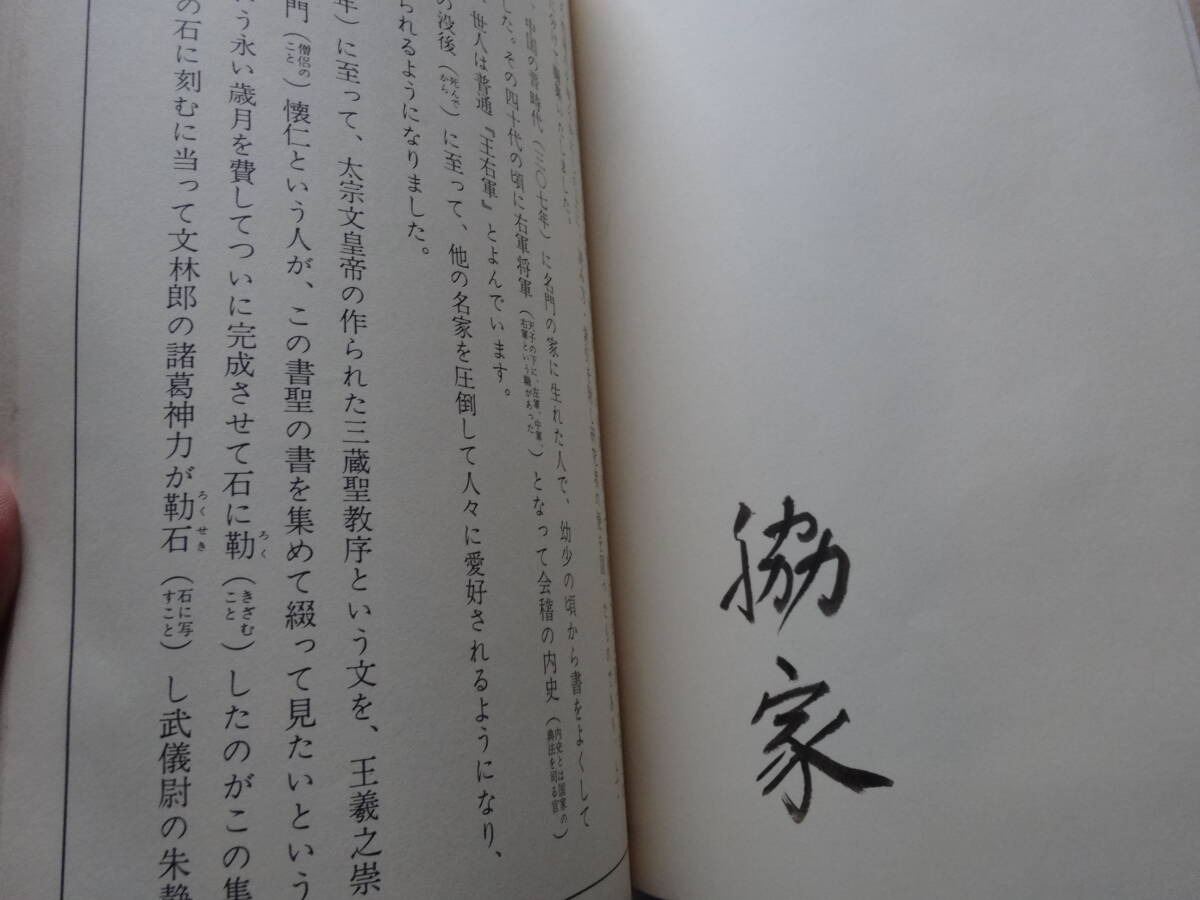 脇家
中国の晋時代（三〇七年）に名門の家に生れた人で、幼少の頃から書をよくして
した。その四十代の頃に右軍将軍（天子の下に、左軍、中軍、右軍という職があった）となって会稽の内史（内史とは国家の典法を司る官）
世人は普通『王右軍』とよんでいます。
の没後（死んでから）に至って、他の名家を圧倒して人々に愛好されるようになり、
られるようになりました。
年）に至って、太宗文皇帝の作られた三蔵聖教序という文を、王羲之崇
門（僧侶のこと）懐仁という人が、この書聖の書を集めて綴って見たいという
う永い歳月を費してついに完成させて石に勒ろく（きざむこと）したのがこの集
の石に刻むに当って文林郎の諸葛神力が勒石ろくせき（石に写すこと）し武儀尉の朱静